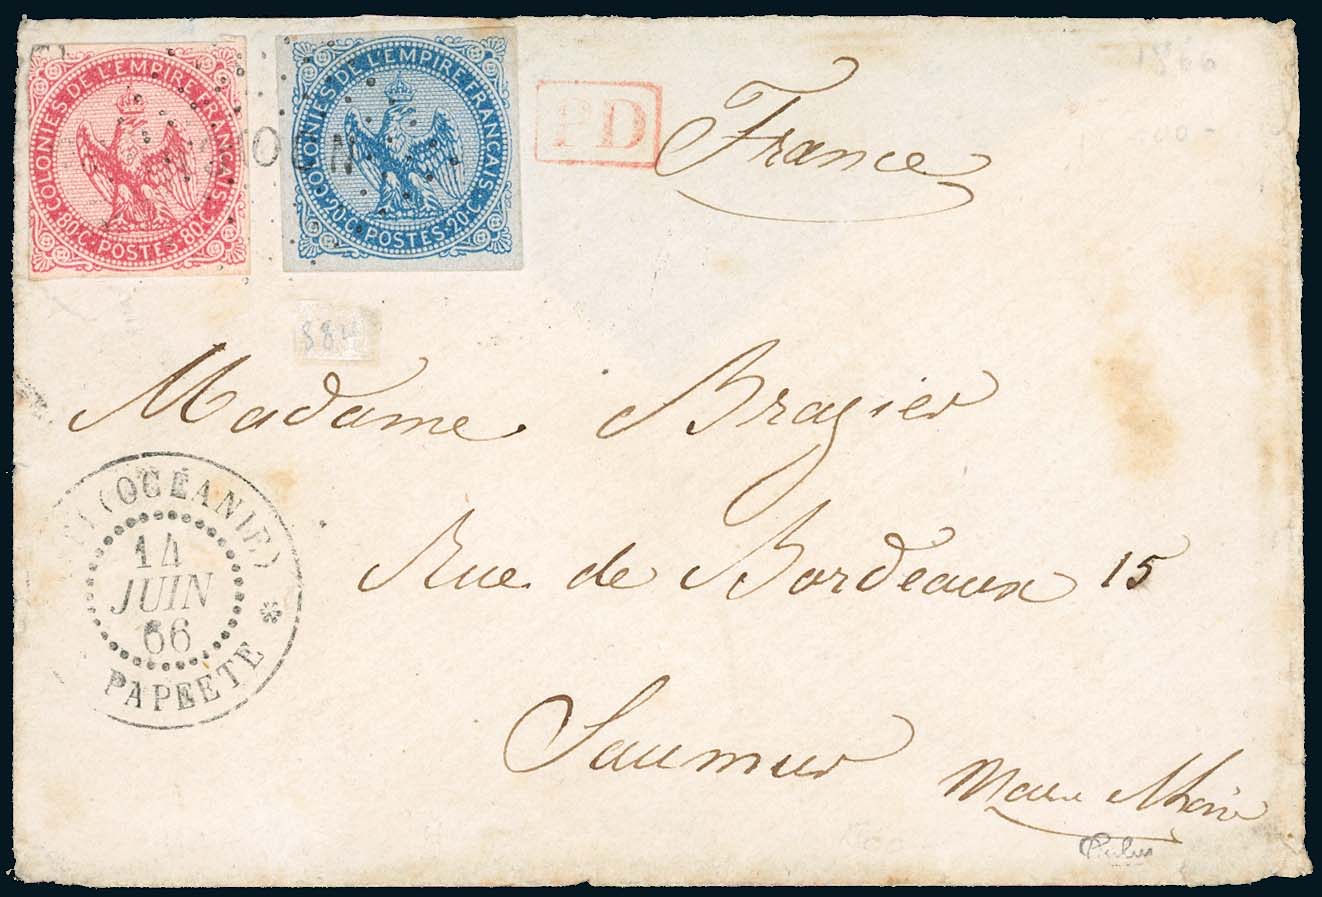 COLONIES DE L'EMPIRE FRANÇAIS
80.C. POSTES. 80.C.
COLONIES DE L'EMPIRE FRANÇAIS
20.C. POSTES. 20.C.
PD
France
Madame Brazier
Rue de Bordeaux 15
Saumur
(OCÉANIE)
14
JUIN
66
PAPEETE